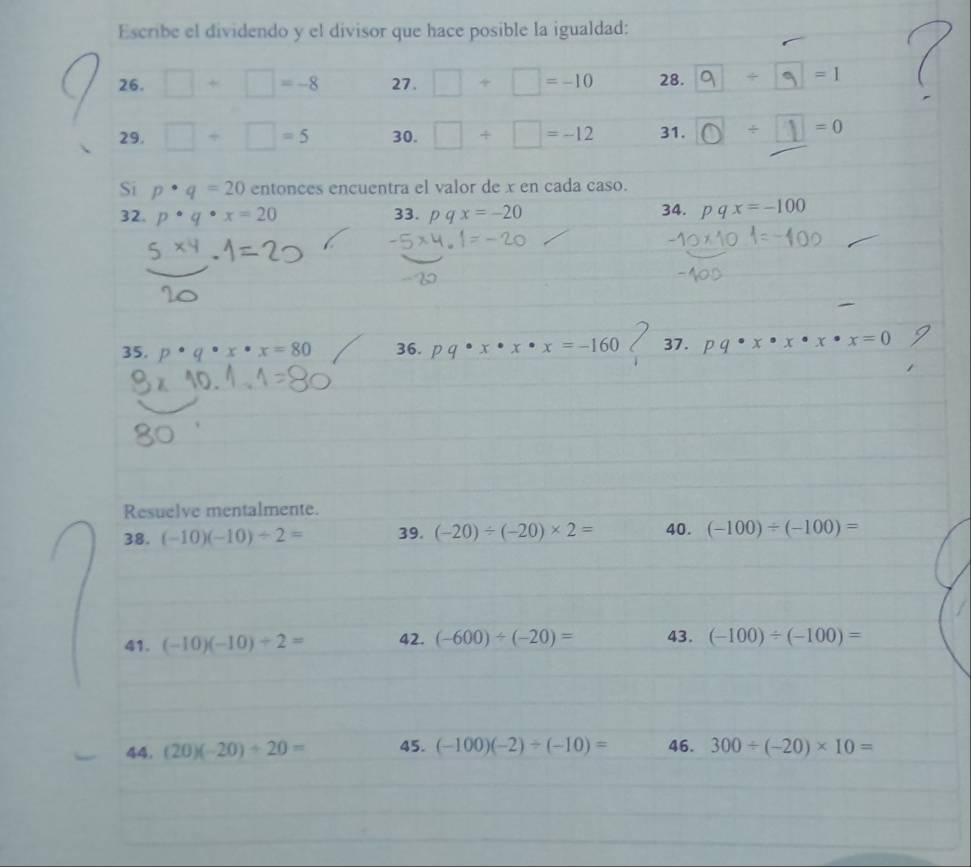 Escribe el dividendo y el divisor que hace posible la igualdad:
26. □ ÷ □ = -8 27. □ ÷ □ = -10 28. 9 ÷ 9 = 1
29. □ ÷ □ = 5 30. □ ÷ □ = -12 31. 0 ÷ 1 = 0
Si p • q = 20 entonces encuentra el valor de x en cada caso.
32. p • q • x = 20 33. p q x = -20 34. p q x = -100
5 x 4 . 1 = 20 -5 x 4 . 1 = -20 -10 x 10 1 = -100
20 -20 -100
35. p • q • x • x = 80 36. p q • x • x • x = -160 ? 37. p q • x • x • x • x = 0 ?
8 x 10 . 1 . 1 = 80
80
Resuelve mentalmente.
38. (-10)(-10) ÷ 2 = 39. (-20) ÷ (-20) × 2 = 40. (-100) ÷ (-100) =
41. (-10)(-10) ÷ 2 = 42. (-600) ÷ (-20) = 43. (-100) ÷ (-100) =
44. (20)(-20) ÷ 20 = 45. (-100)(-2) ÷ (-10) = 46. 300 ÷ (-20) × 10 =